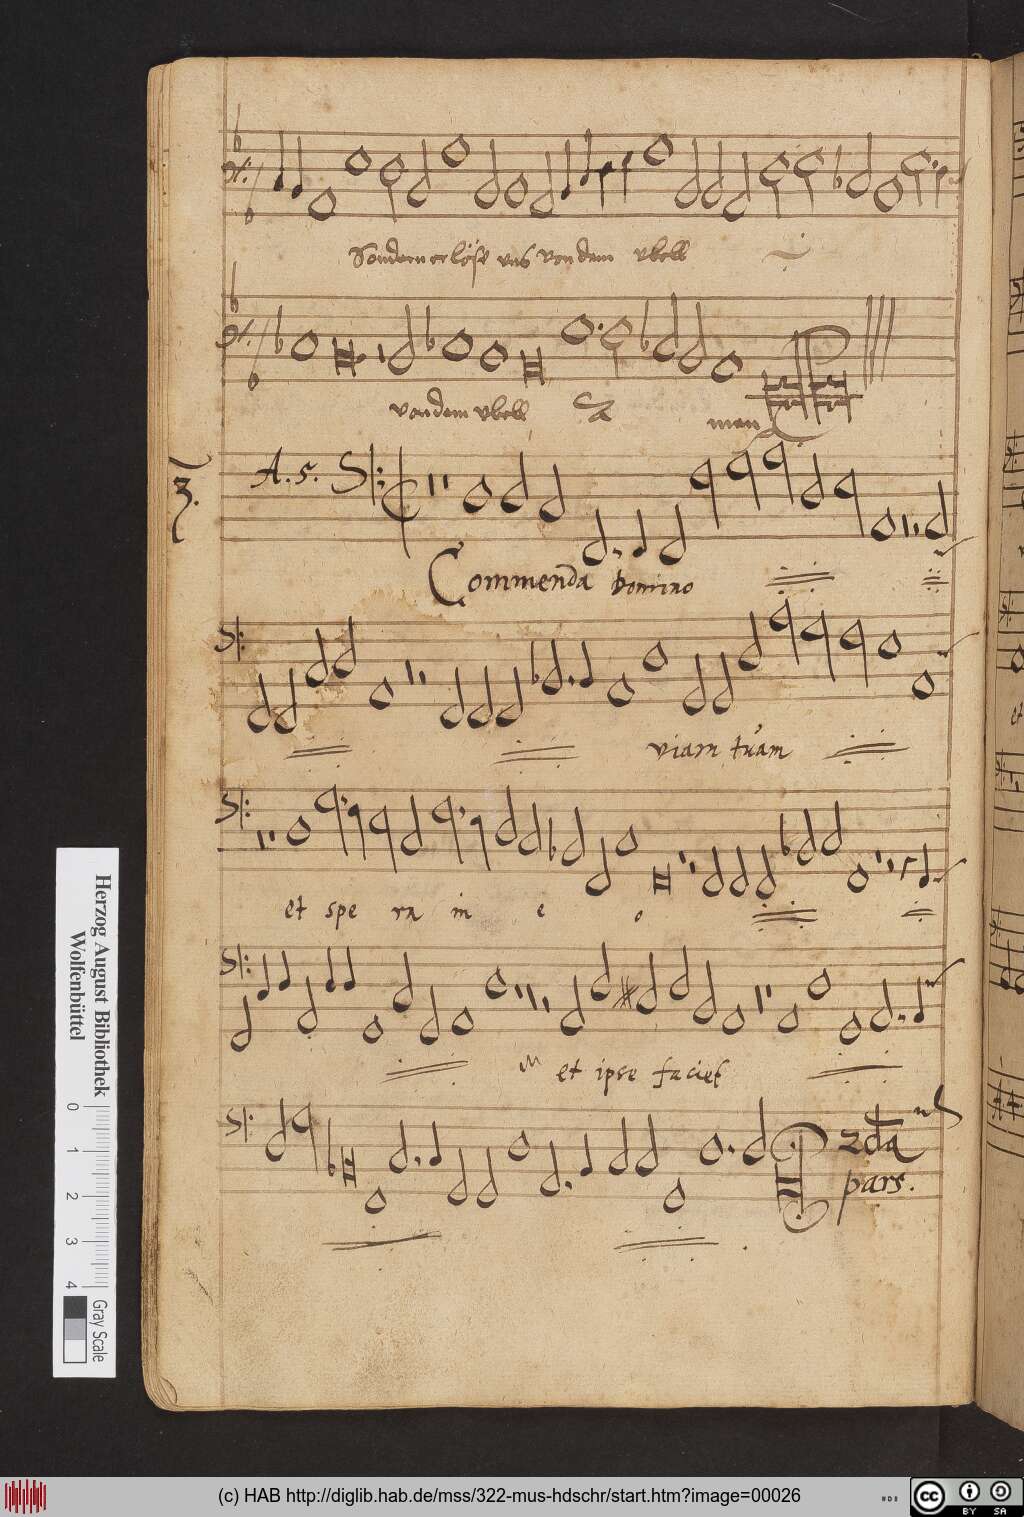 Sondern erlöse vns von dem vbell
von dem vbell A men
3. A. 5.
Commenda Domino
viam tuam
et spe ra in e o
et ipse faciet
2da pars.
Herzog August Bibliothek
Wolfenbüttel
0 1 2 3 4 Gray Scale
(c) HAB http://diglib.hab.de/mss/322-mus-hdschr/start.htm?image=00026
cc BY SA